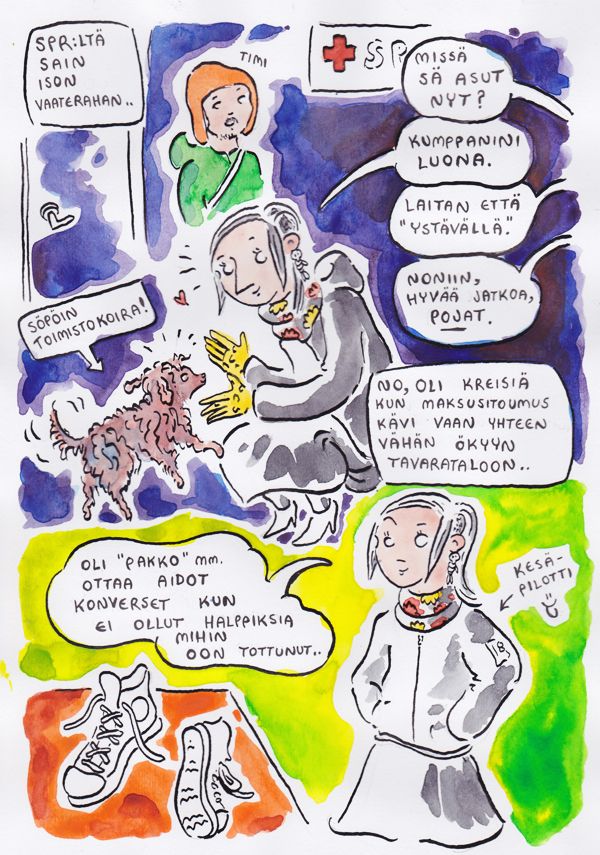 SPR:LTÄ
SAIN
ISON
VAATERAHAN..
TIMI
SP
MISSÄ
SÄ ASUT
NYT?
KUMPPANINI
LUONA.
LAITAN ETTÄ
"YSTÄVÄLLÄ."
NONIIN,
HYVÄÄ JATKOA,
POJAT.
SÖPÖIN
TOIMISTOKOIRA!
NO, OLI KREISIÄ
KUN MAKSUSITOUMUS
KÄVI VAAN YHTEEN
VÄHÄN ÖKYYN
TAVARATALOON..
OLI "PAKKO" MM.
OTTAA AIDOT
KONVERSET KUN
EI OLLUT HALPPIKSIA
MIHIN
OON TOTTUNUT..
KESÄ-
PILOTTI